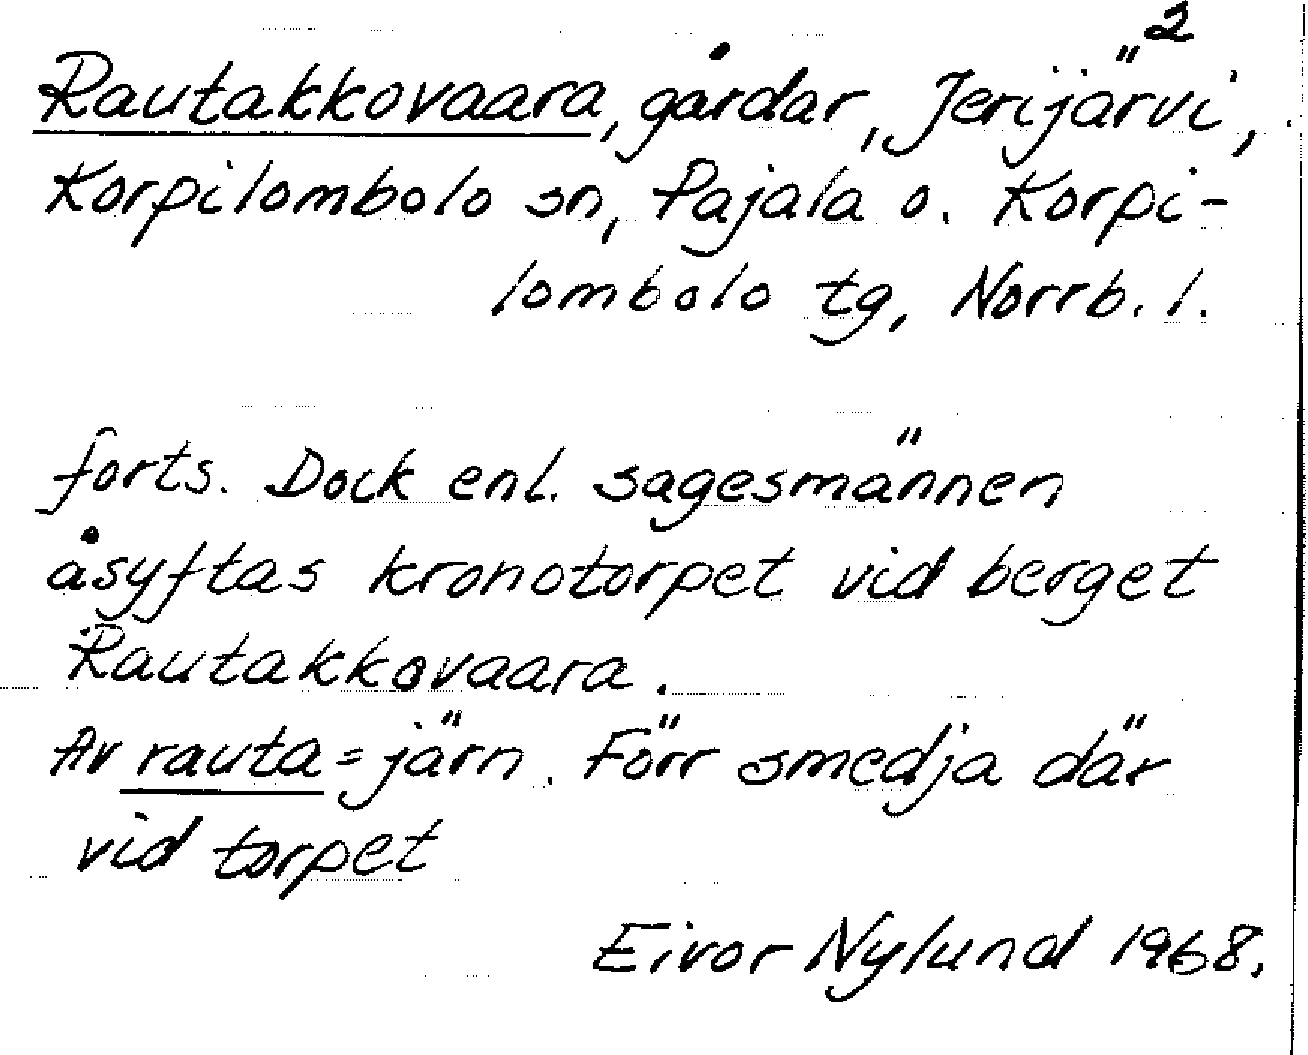 2
Rautakkovaara, gårdar, Jerijärvi,
Korpilombolo sn, Pajala o. Korpi-
lombolo tg, Norrb. l.
forts. Dock enl. sagesmännen
åsyftas kronotorpet vid berget
Rautakkovaara.
Av rauta = järn. Förr smedja där
vid torpet
Eivor Nylund 1968.